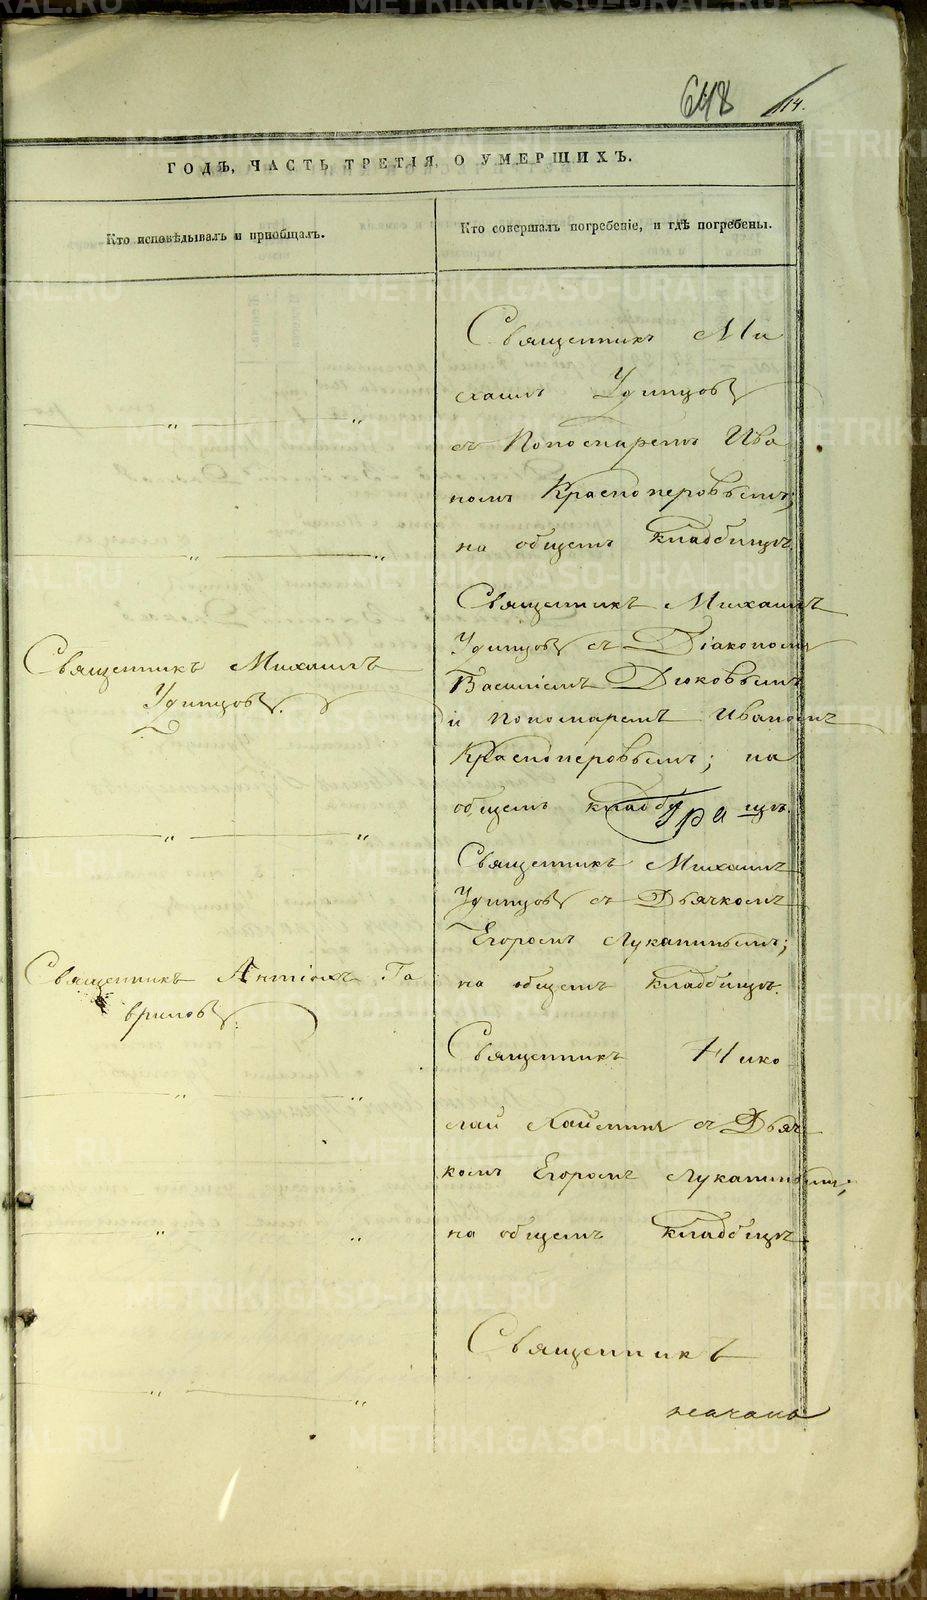 648 114.
ГОДЪ, ЧАСТЬ ТРЕТІЯ, О УМЕРШИХЪ.
Кто исповѣдывалъ и пріобщалъ.
Кто совершалъ погребеніе, и гдѣ погребены.
Священникъ Ми
хаилъ Удинцовъ
съ Пономаремъ Ива
номъ Красноперовымъ;
на общемъ кладбищѣ.
Священникъ Михаилъ
Удинцовъ съ Діакономъ
Василіемъ Дюковымъ
и Пономаремъ Иваномъ
Красноперовымъ; на
общемъ кладби щѣ.
Священникъ Михаилъ
Удинцовъ.
Священникъ Михаилъ
Удинцовъ съ Дьячкомъ
Егоромъ Лукани­нымъ;
на общемъ кладбищѣ.
Священникъ Антіохъ Га
вриловъ.
Священникъ Нико
лай съ Дьяч
комъ Егоромъ Луканинымъ;
на общемъ кладбищѣ.
Священникъ
METRIKI.GASO-URAL.RU